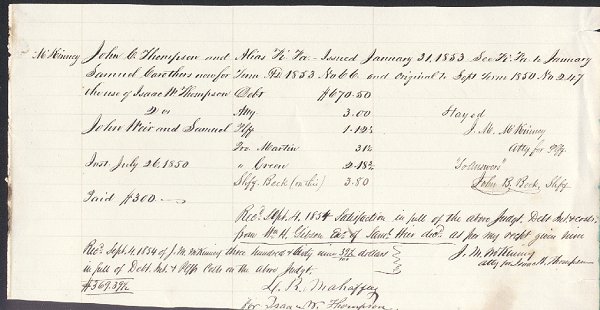 McKinney John C. Thompson and Alias Fi Fa. - Issued January 31, 1853 See Fi. Fa. to January
Samuel Carothers now for Term 1853 No 66 and original to Sept Term 1850 No. 247
the use of Isaac W Thompson Debt $670.50
vs Atty 3.00 Stayed
John Weir and Samuel Plff 1.12½ J. M. McKinney
Pro. Martin 31½ Atty for Plff.
Inst July 26, 1850 " Green 2.18¾ "So Answers"
Shff. Beck (on this) 3.80 John B. Beck, Shff.
Paid $300.—
Recd. Sept. 4, 1854 Satisfaction in full of the above Judgt, Debt Int & costs
from Wm H. Gibson of as per my recpt given him
J. M. McKinney
atty for Isaac W. Thompson
Recd. Sept. 4, 1854 of J. M. McKinney three hundred & sixty nine 39/100 dollars
in full of Debt. Int. & Plffs Costs on the above Judgt.
$369.39
Mahaffey
for Isaac W. Thompson